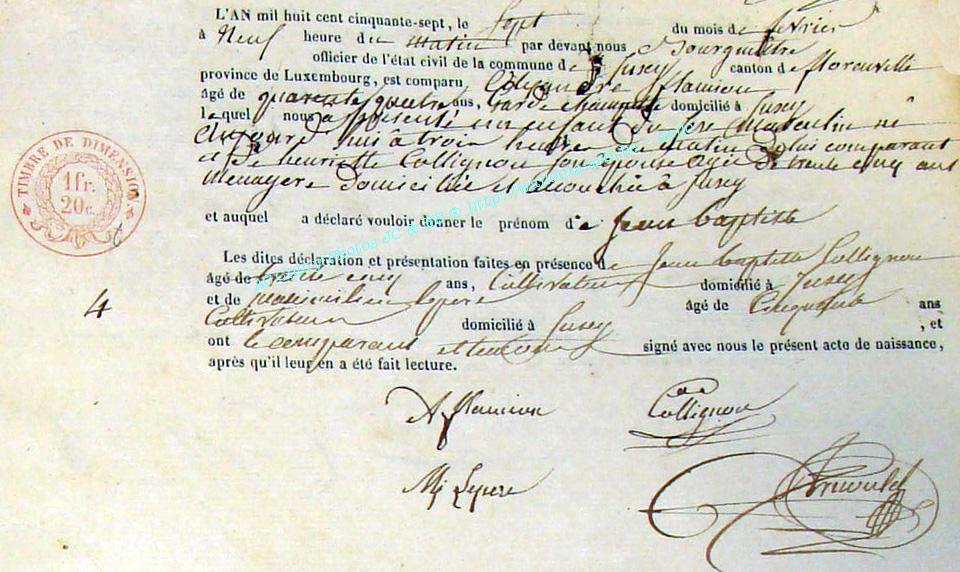 L'AN mil huit cent cinquante-sept, le Sept du mois de février
à Neuf heure du matin par devant nous Bourguemestre
officier de l'état civil de la commune de Jusey canton de
province de Luxembourg, est comparu
âgé de quarante quatre ans, Garde champêtre domicilié à Jusey
lequel nous a présenté un enfant du sexe Masculin né
à trois heures du Matin de lui comparant
et de henriette Collignon son épouse agée de trente cinq ans
Menagere domiciliée et accouchée à Jusey
et auquel a déclaré vouloir donner le prénom de Jean baptiste
Les dites déclaration et présentation faites en présence de Jean baptiste Collignon
âgé de trente cinq ans, Cultivateur domicilié à Jusey
et de maximilien lepere âgé de Cinquante ans
Cultivateur domicilié à Jusey , et
ont le comparant et temoins signé avec nous le présent acte de naissance,
après qu'il leur en a été fait lecture.
TIMBRE DE DIMENSION
1 fr.
20 c.
4
Collignon
M Lepere